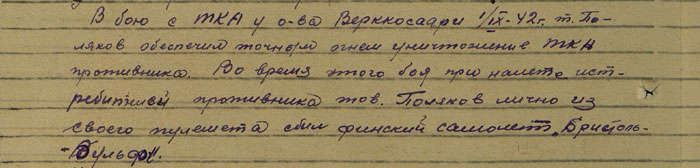 В бою с ТКА у о-ва Верккосаари 1/IX-42 г. т. По-
ляков обеспечил точным огнем уничтожение ТКА
противника. Во время этого боя при налете ист-
ребителей противника тов. Поляков лично из
своего пулемета сбил финский самолет „Бристоль-
-Бульдог".